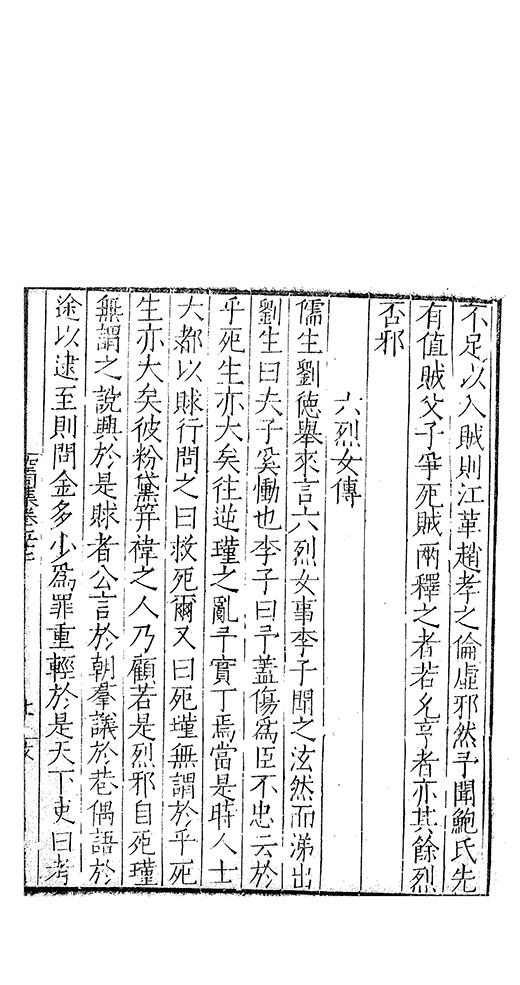 不足以入賊則江革趙孝之倫虛邪然予聞鮑氏先
有值賊父子爭死賊兩釋之者若允亨者亦其餘烈
否邪
六烈女傳
儒生劉德舉來言六烈女事李子聞之泫然而涕出
劉生曰夫子奚慟也李子曰予蓋傷為臣不忠云於
乎死生亦大矣往逆瑾之亂予實丁焉當是時人士
大都以賕行問之曰救死爾又曰死瑾無謂於乎死
生亦大矣彼粉黛笄褘之人乃顧若是烈邪自死瑾
無謂之說興於是賕者公言於朝羣議於巷偶語於
途以逮至則問金多少為罪重輕於是天下吏曰考
集卷五十